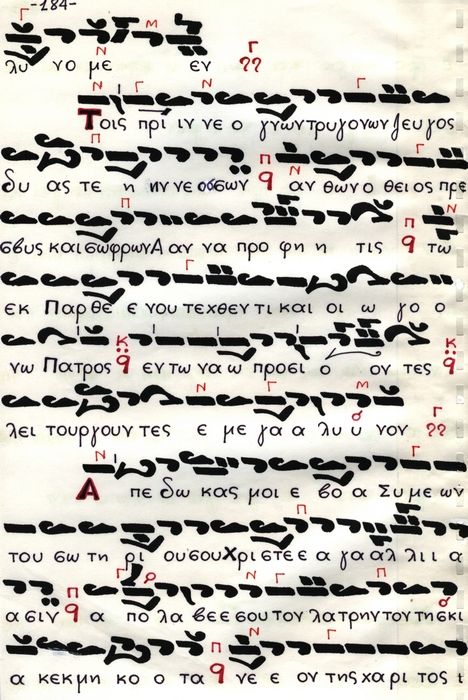 -184-
λυ νο με εν
Τοις πρι ιν νε ο γνων τρυγονων ζευγος
δυ ας τε η ην νε οσσων αν θων ο θει ος πρε
σβυς και σωφρων Α αν να προ φη η τις τω
εκ Παρθε ε νου τεχθεν τι και οι ω γο ο
νω Πατρος εν τω να ω προσι ο ον τες
λει τουργουν τες ε με γα α λυ υ νον
Α πε δω κας μοι ε βο α Συμε ων
του σω τη ρι ου σου Χριστε ε α γα αλ λι ι α
α σιν α πο λα βε ε σου τον λατρην τον της κι
α κεκμη κο ο τα νε ε ον της χαρι τος ι